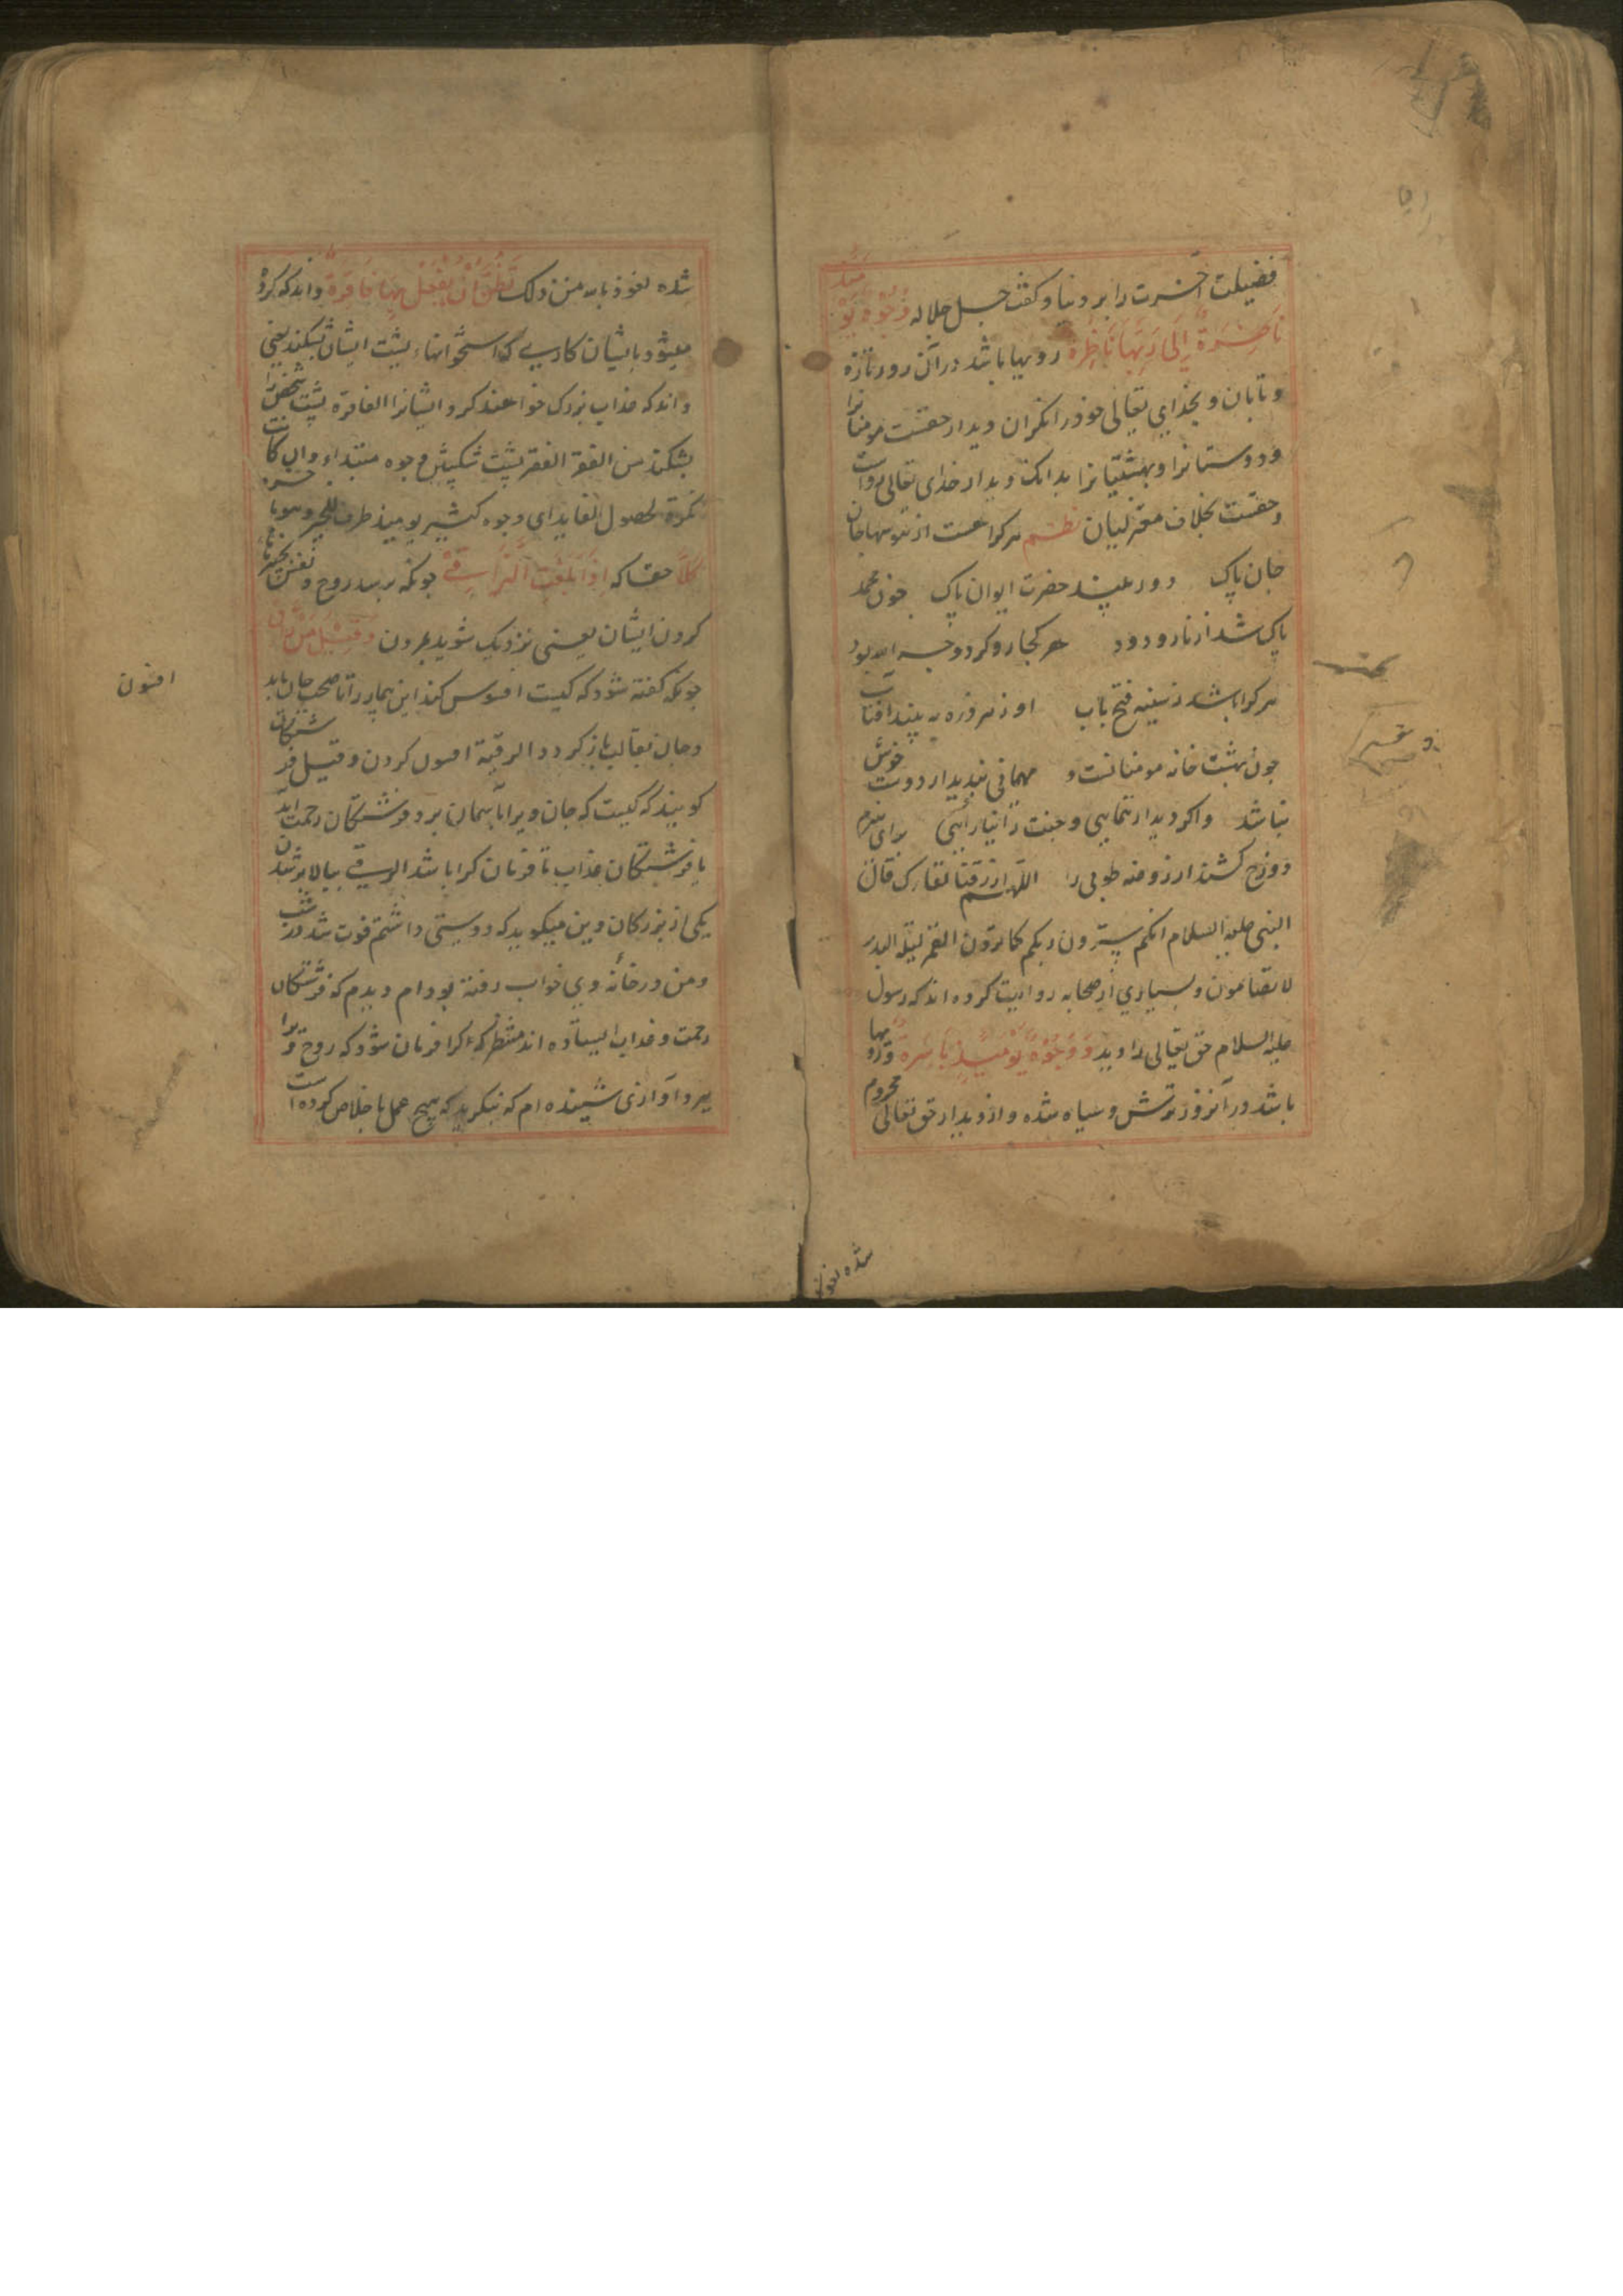 فضیلت آخرت را بر دنیا و گفت جل جلاله وُجُوهٌ یَوْمَئِذٍ
نَاضِرَةٌ اِلَی رَبِّهَا نَاظِرَة رویها باشد در آن روز تازه
و تابان و بخدای تعالی خود را نکران دیدار حقست مومنانرا
و دوستانرا و بهشتیانرا بدانک دیدار خدای تعالی رواست
و حقست بخلاف معتزلیان نظم هر کرا هست از هوسها جان
جان پاک زود بیند حضرت ایوان پاک چون محمد
پاک شد از نار و دود هر کجا رو کرد وجه الله بود
هر کرا باشد ز سینه فتح باب او ز هر ذره به بیند افتاب
چون بهشت خانه مومنانست و مهمانی بیدیدار دوست خوش
نباشد و اکر دیدار ننمایی و جنت را نیارایی برای
دوزخ کشند از روضه طوبی را اللهم ارزقنا لقارک قال
النبی علیه السلام انکم سترون ربکم کما ترون القمر لیلة البدر
لا تضامون و بسیاری از صحابه روایت کرده اند که رسول
علیه السلام حق تعالی را دید وَ وُجُوهٌ یَوْمَئِذٍ بَاسِرَةٌ و رویها
باشد در آنروز ترش و سیاه شده و از دیدار حق تعالی محروم
شده نعوذ
شده نعوذ بالله من ذلک تَظُنُّ اَنْ یُفْعَلَ بِهَا فَاقِرَةٌ داند که کرده
میشود بایشان کاری که استخوانهاء پشت ایشان بشکند یعنی
داند که عذاب بزرک خواهند کرد ایشانرا الفاقرة پشت شخص را
بشکند من الفقر الفقر پشت شکستن وجوه مبتداء و ان کانت
نکرة لحصول الفایدة ای وجوه کثیر یومئذ ظرف للخبر
کَلَّا حقا که اِذَا بَلَغَتِ التَّرَاقِیَ چونکه برسد روح و نفس
کردن ایشان یعنی نزدیک شوید بمردن وَقِیلَ مَنْ رَاقٍ
چونکه گفته شود که کیست افسوس کند این بیمار را تا صحت یابد
و جان بقالب باز کردد الرقیة افسون کردن و قیل فرشتکان
کویند که کیست که جان ویرا باسمان برد فرشتکان رحمت اید
یا فرشتکان عذاب تا فرمان کرا باشد الرقی ببالا بر شدن
یکی از بزرکان دین میکوید که دوستی داشتم فوت شد در شب
و من در خانه وی خواب رفته بودام دیدم که فرشتکان
رحمت و عذاب ایستاده اند منتظر که کرا فرمان شود که روح ورا
ببرد آوازی شنیده ام که بنکرید که هیچ عمل باخلاص کرده است
افسون